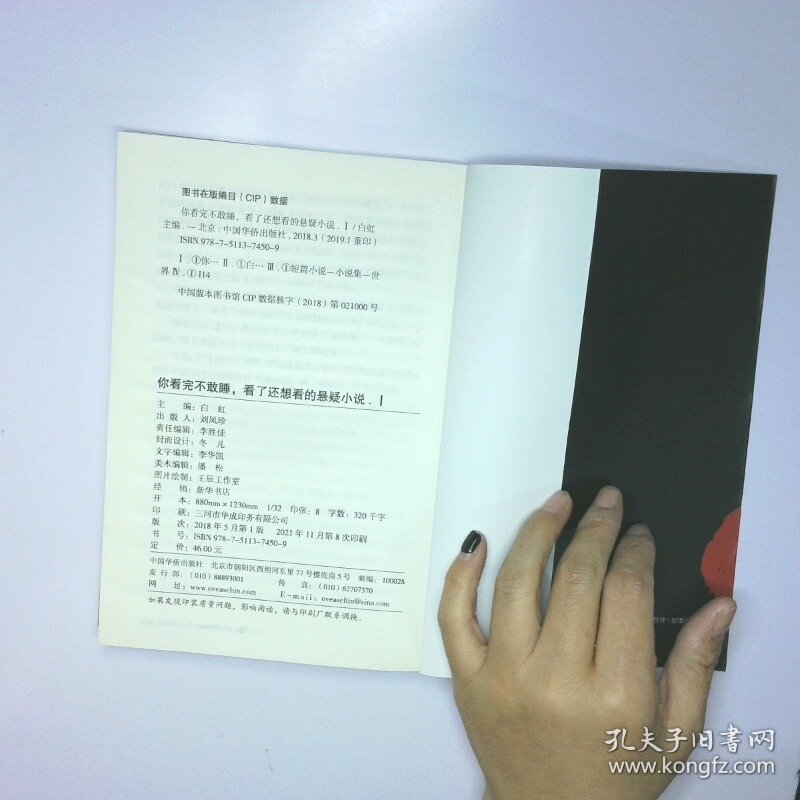 图书在版编目(CIP)数据
你看完不敢睡，看了还想看的悬疑小说．Ⅰ/白虹
主编．—北京：中国华侨出版社，2018.3（2019.1重印）
ISBN 978-7-5113-7450-9
Ⅰ．①你… Ⅱ．①白… Ⅲ．①短篇小说—小说集—世
界 Ⅳ．①I14
中国版本图书馆CIP数据核字（2018）第021000号
你看完不敢睡，看了还想看的悬疑小说．Ⅰ
主　　编：白　虹
出 版 人：刘凤珍
责任编辑：李胜佳
封面设计：冬　凡
文字编辑：李华凯
美术编辑：潘　松
图片绘制：王辰工作室
经　　销：新华书店
开　　本：880mm×1230mm　1/32　印张：8　字数：320千字
印　　刷：三河市华成印务有限公司
版　　次：2018年5月第1版　2021年11月第8次印刷
书　　号：ISBN 978-7-5113-7450-9
定　　价：46.00元
中国华侨出版社　北京市朝阳区西坝河东里77号楼底商5号　邮编：100028
发 行 部：（010）88893001　传　真：（010）62707370
网　　址：www.oveaschin.com　E-mail：oveaschin@sina.com
如果发现印装质量问题，影响阅读，请与印刷厂联系调换。
孔夫子旧书网
www.kongfz.com